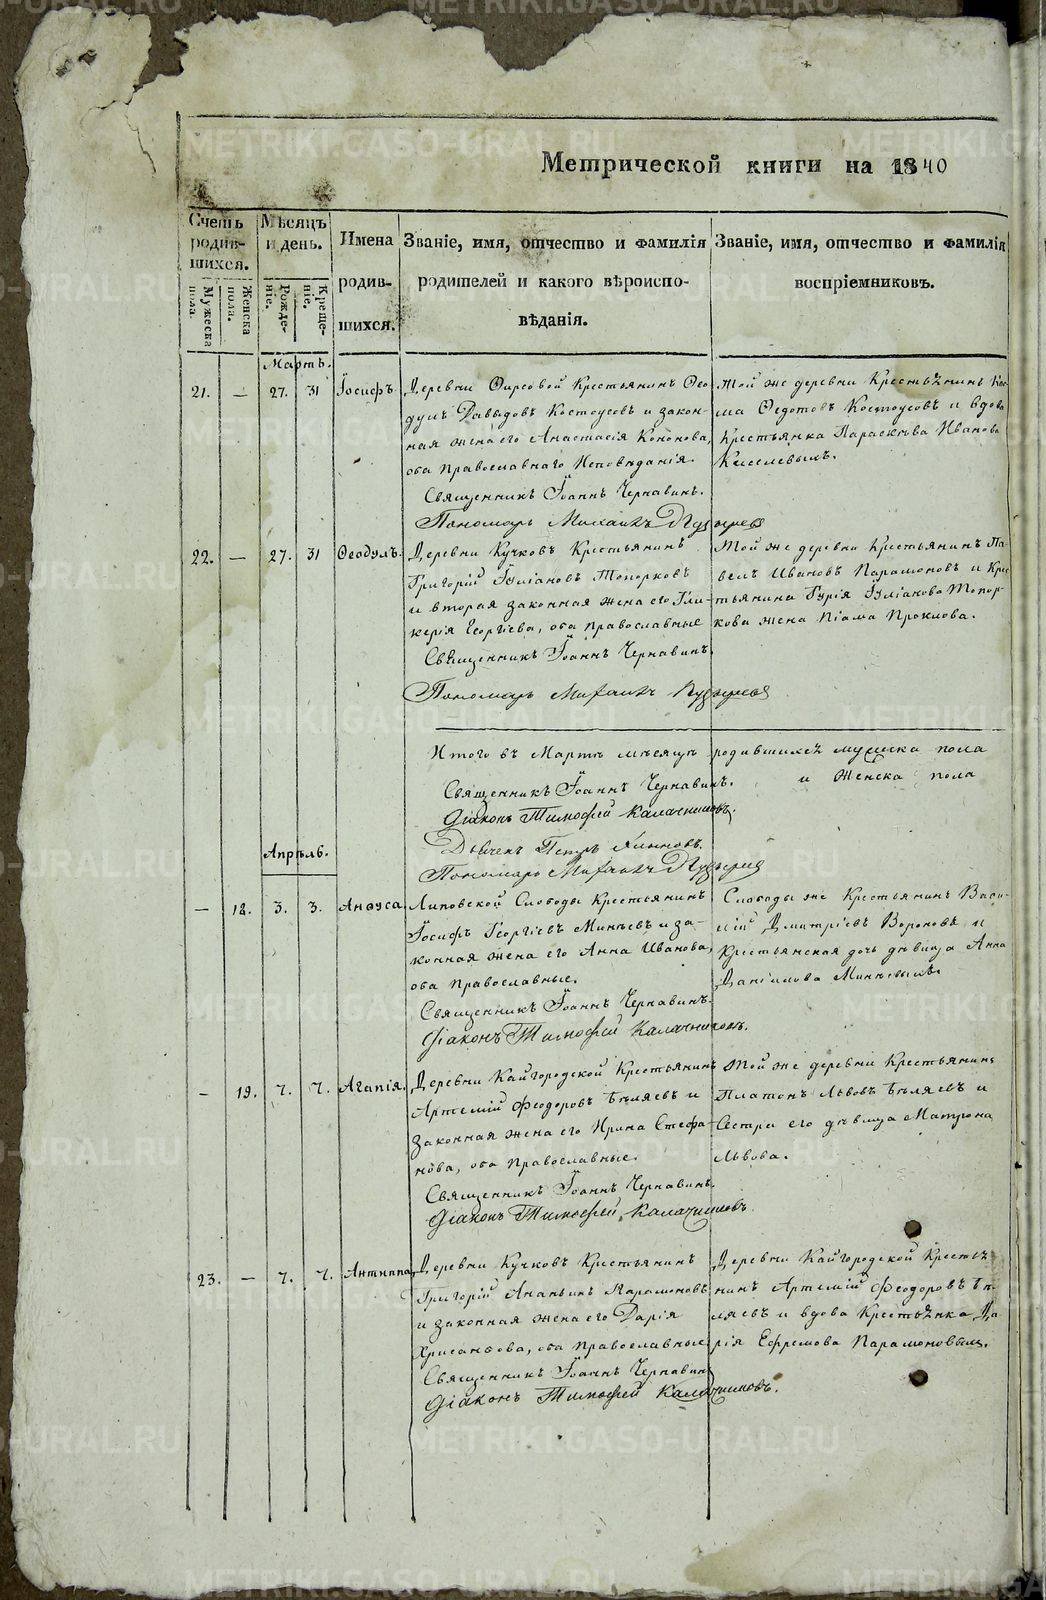 Метрической книги на 1840
Счетъ родив-шихся.
Мужеска пола.
Женска пола.
Мѣсяцъ и день.
Рожде-ніе.
Креще-ніе.
Имена родив-шихся.
Званіе, имя, отчество и фамилія родителей и какого вѣроиспо-вѣданія.
Званіе, имя, отчество и фамилія воспріемниковъ.
Мартъ.
21. — 27. 31 Іосифъ.
Деревни Фирсовой Крестьянинъ Ѳео
дулъ Давыдовъ Костоусовъ и закон-
ная жена его Анастасія Кононова,
оба православнаго Исповѣданія.
Священникъ Іоаннъ Чернавинъ.
Пономарь Михаилъ Пузыревъ
Той же деревни Крестьянинъ Кос-
ма Ѳедотовъ Костоусовъ и вдова
Крестьянка Параскѣва Иванова
Киселевыхъ.
22. — 27. 31 Ѳеодулъ.
Деревни Кучковъ Крестьянинъ
Григорій Іуліановъ Топорковъ
и вторая законная жена его Гли-
керія Георгіева, оба православные
Священникъ Іоаннъ Чернавинъ.
Пономарь Михаилъ Пузыревъ
Той же деревни Крестьянинъ Па-
велъ Ивановъ Парамоновъ и Крес
тьянина Гурія Іуліанова Топор-
кова жена Піама Проклова.
Итого въ Мартѣ мѣсяцѣ родившихся мужеска пола
и Женска пола
Священникъ Іоаннъ Чернавинъ.
Діаконъ Тимоѳей Калачниковъ.
Дьячекъ Петръ
Пономарь Михаилъ Пузыревъ
Апрѣль.
— 18. 3. 3. Анѳуса
Липовской Слободы Крестьянинъ
Іосифъ Георгіевъ Минѣевъ и за-
конная жена его Анна Иванова,
оба православные.
Священникъ Іоаннъ Чернавинъ.
Діаконъ Тимоѳей Калачниковъ.
Слободы же Крестьянинъ Васи-
лій Дмитріевъ Вороновъ и
Крестьянская дочь дѣвица Анна
Даніилова Минѣевыхъ.
— 19. 7. 7. Агапія.
Деревни Кайгородской Крестьянинъ
Артемій Ѳеодоровъ Бѣляевъ и
Законная жена его Ирина Стефа-
нова, оба православные.
Священникъ Іоаннъ Чернавинъ.
Діаконъ Тимоѳей Калачниковъ.
Той же деревни Крестьянинъ
Платонъ Львовъ Бѣляевъ и
Сестра его дѣвица Матрона
Львова.
23. — 7. 7. Антиппа,
Деревни Кучковъ Крестьянинъ
Григорій Ананьинъ Парамоновъ
и законная жена его Дарія
Хрисанѳова, оба православные
Священникъ Іоаннъ Чернавинъ
Діаконъ Тимоѳей Калачниковъ.
Деревни Кайгородской Крестья
нинъ Артемій Ѳеодоровъ Бѣ
ляевъ и вдова Крестьянка Да
рія Ефремова Парамоновыхъ.
METRIKI.GASO-URAL.RU